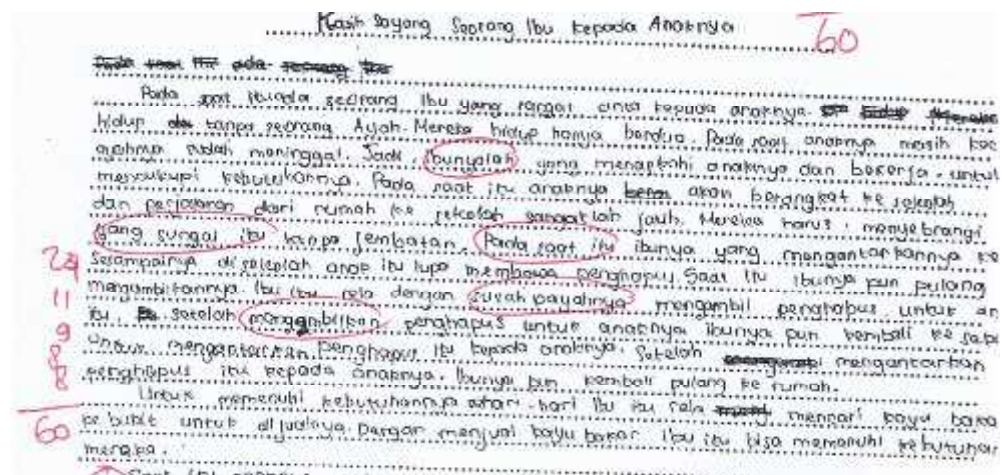 Kasih Sayang Seorang Ibu kepada Anaknya
60
Pada saat itu ada seorang Ibu
Pada saat itu ada seorang Ibu yang sangat cinta kepada anaknya.
hidup tanpa seorang Ayah. Mereka hidup hanya berdua. Pada saat anaknya masih kec
ayahnya sudah meninggal. Jadi, ibunyalah yang menafkahi anaknya dan bekerja untuk
mencukupi kebutuhannya. Pada saat itu anaknya akan berangkat ke sekolah
dan perjalanan dari rumah ke sekolah sangatlah jauh. Mereka harus menyebrangi
yang sungai itu tanpa jembatan. Pada saat itu ibunya yang mengantarkannya ke
24 Sesampainya di sekolah anak itu lupa membawa penghapus. Saat itu ibunya pun pulang
11 mengambilkannya. Ibu itu rela dengan susah payahnya mengambil penghapus untuk an
9 itu. setelah mengambilkan penghapus untuk anaknya ibunya pun kembali ke
8 untuk mengantarkan penghapus itu kepada anaknya. Setelah mengantarkan
8 penghapus itu kepada anaknya. Ibunya pun kembali pulang ke rumah.
Untuk memenuhi kebutuhannya Ibu itu rela mencari kayu bakar
60 ke bukit untuk dijualnya. Dengan menjual kayu bakar Ibu itu bisa memenuhi kebutuhan
mereka.
Saat itu